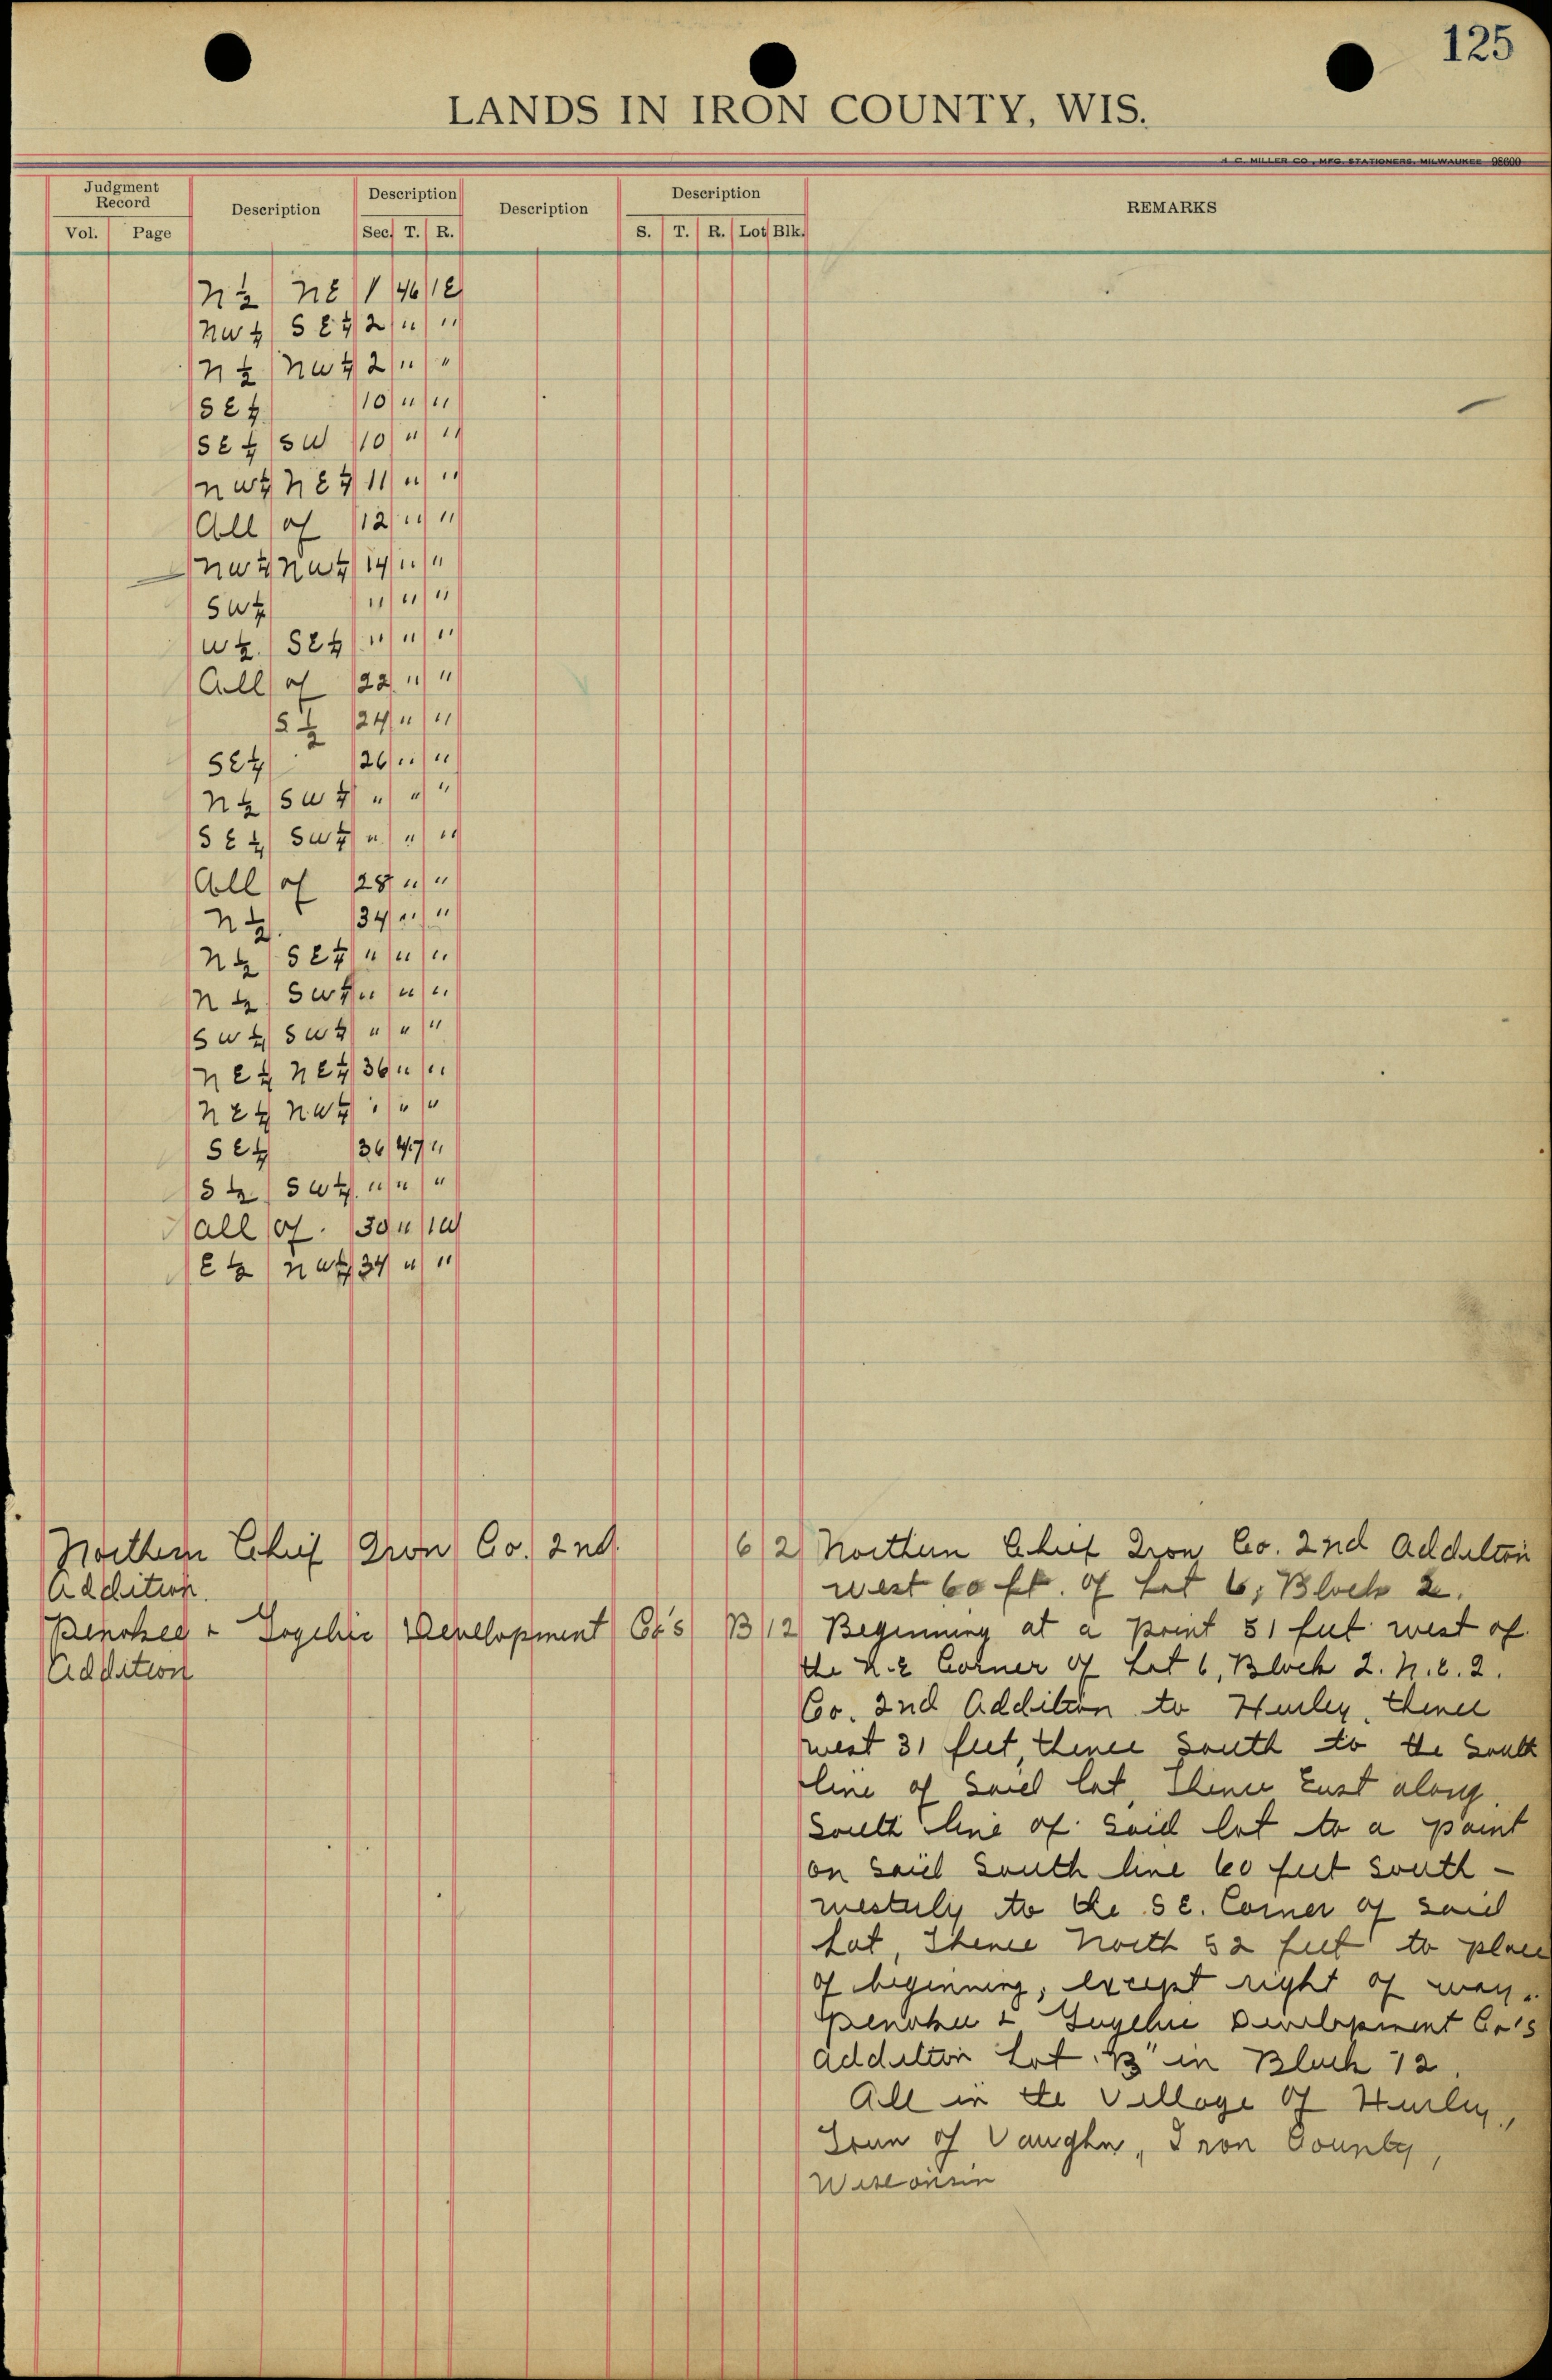 125
LANDS IN IRON COUNTY, WIS.
A. C. MILLER CO., MFG. STATIONERS, MILWAUKEE 98600
Judgment Record Description Description Description Description REMARKS
Vol. Page Sec. T. R. S. T. R. Lot Blk.
N ½ NE 1 46 1E
NW ¼ SE ¼ 2 " "
N ½ NW ¼ 2 " "
SE ¼ 10 " "
SE ¼ SW 10 " "
NW ¼ NE ¼ 11 " "
All of 12 " "
NW ¼ NW ¼ 14 " "
SW ¼ " " "
W ½ SE ¼ " " "
All of 22 " "
S ½ 24 " "
SE ¼ 26 " "
N ½ SW ¼ " " "
SE ¼ SW ¼ " " "
All of 28 " "
N ½ 34 " "
N ½ SE ¼ " " "
N ½ SW ¼ " " "
SW ¼ SW ¼ " " "
NE ¼ NE ¼ 36 " "
NE ¼ NW ¼ " " "
SE ¼ 36 47 "
S ½ SW ¼ " " "
all of 30 " 1W
E ½ NW ¼ 34 " "
Northern Chief Iron Co. 2nd. 6 2 Northern Chief Iron Co. 2nd Addition
Addition. West 60 ft. of Lot 6, Block 2.
Penokee & Gogebic Development Co's B 12 Beginning at a point 51 feet west of
Addition the N.E Corner of Lot 6, Block 2. N.C.I.
Co. 2nd Addition to Hurley, thence
west 31 feet, thence South to the South
line of Said lot, Thence East along
South line of said lot to a point
on said South line 60 feet south-
westerly to the SE. Corner of said
Lot, Thence North 52 feet to place
of beginning, except right of way.
Penokee & Gogebic Development Co's
addition Lot "B" in Block 12.
All in the Village of Hurley,
Town of Vaughn, Iron County,
Wisconsin